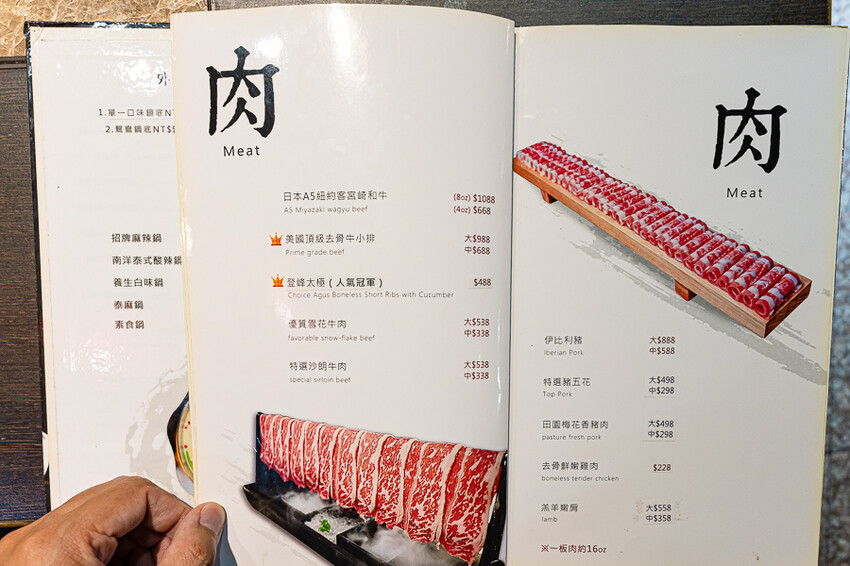 外
1.單一口味鍋底NT
2.鴛鴦鍋底NT$
招牌麻辣鍋
南洋泰式酸辣鍋
養生白味鍋
泰麻鍋
素食鍋
肉
Meat
日本A5紐約客宮崎和牛 (8oz) $1088
A5 Miyazaki wagyu beef (4oz) $668
美國頂級去骨牛小排 大$988
Prime grade beef 中$688
登峰太極(人氣冠軍) $488
Choice Agus Boneless Short Ribs with Cucumber
優質雪花牛肉 大$538
favorable snow-flake beef 中$338
特選沙朗牛肉 大$538
special sirloin beef 中$338
肉
Meat
伊比利豬 大$888
Iberian Pork 中$588
特選豬五花 大$498
Top Pork 中$298
田園梅花香豬肉 大$498
pasture fresh pork 中$298
去骨鮮嫩雞肉 $228
boneless tender chicken
羔羊嫩肩 大$558
lamb 中$358
※一板肉約16oz